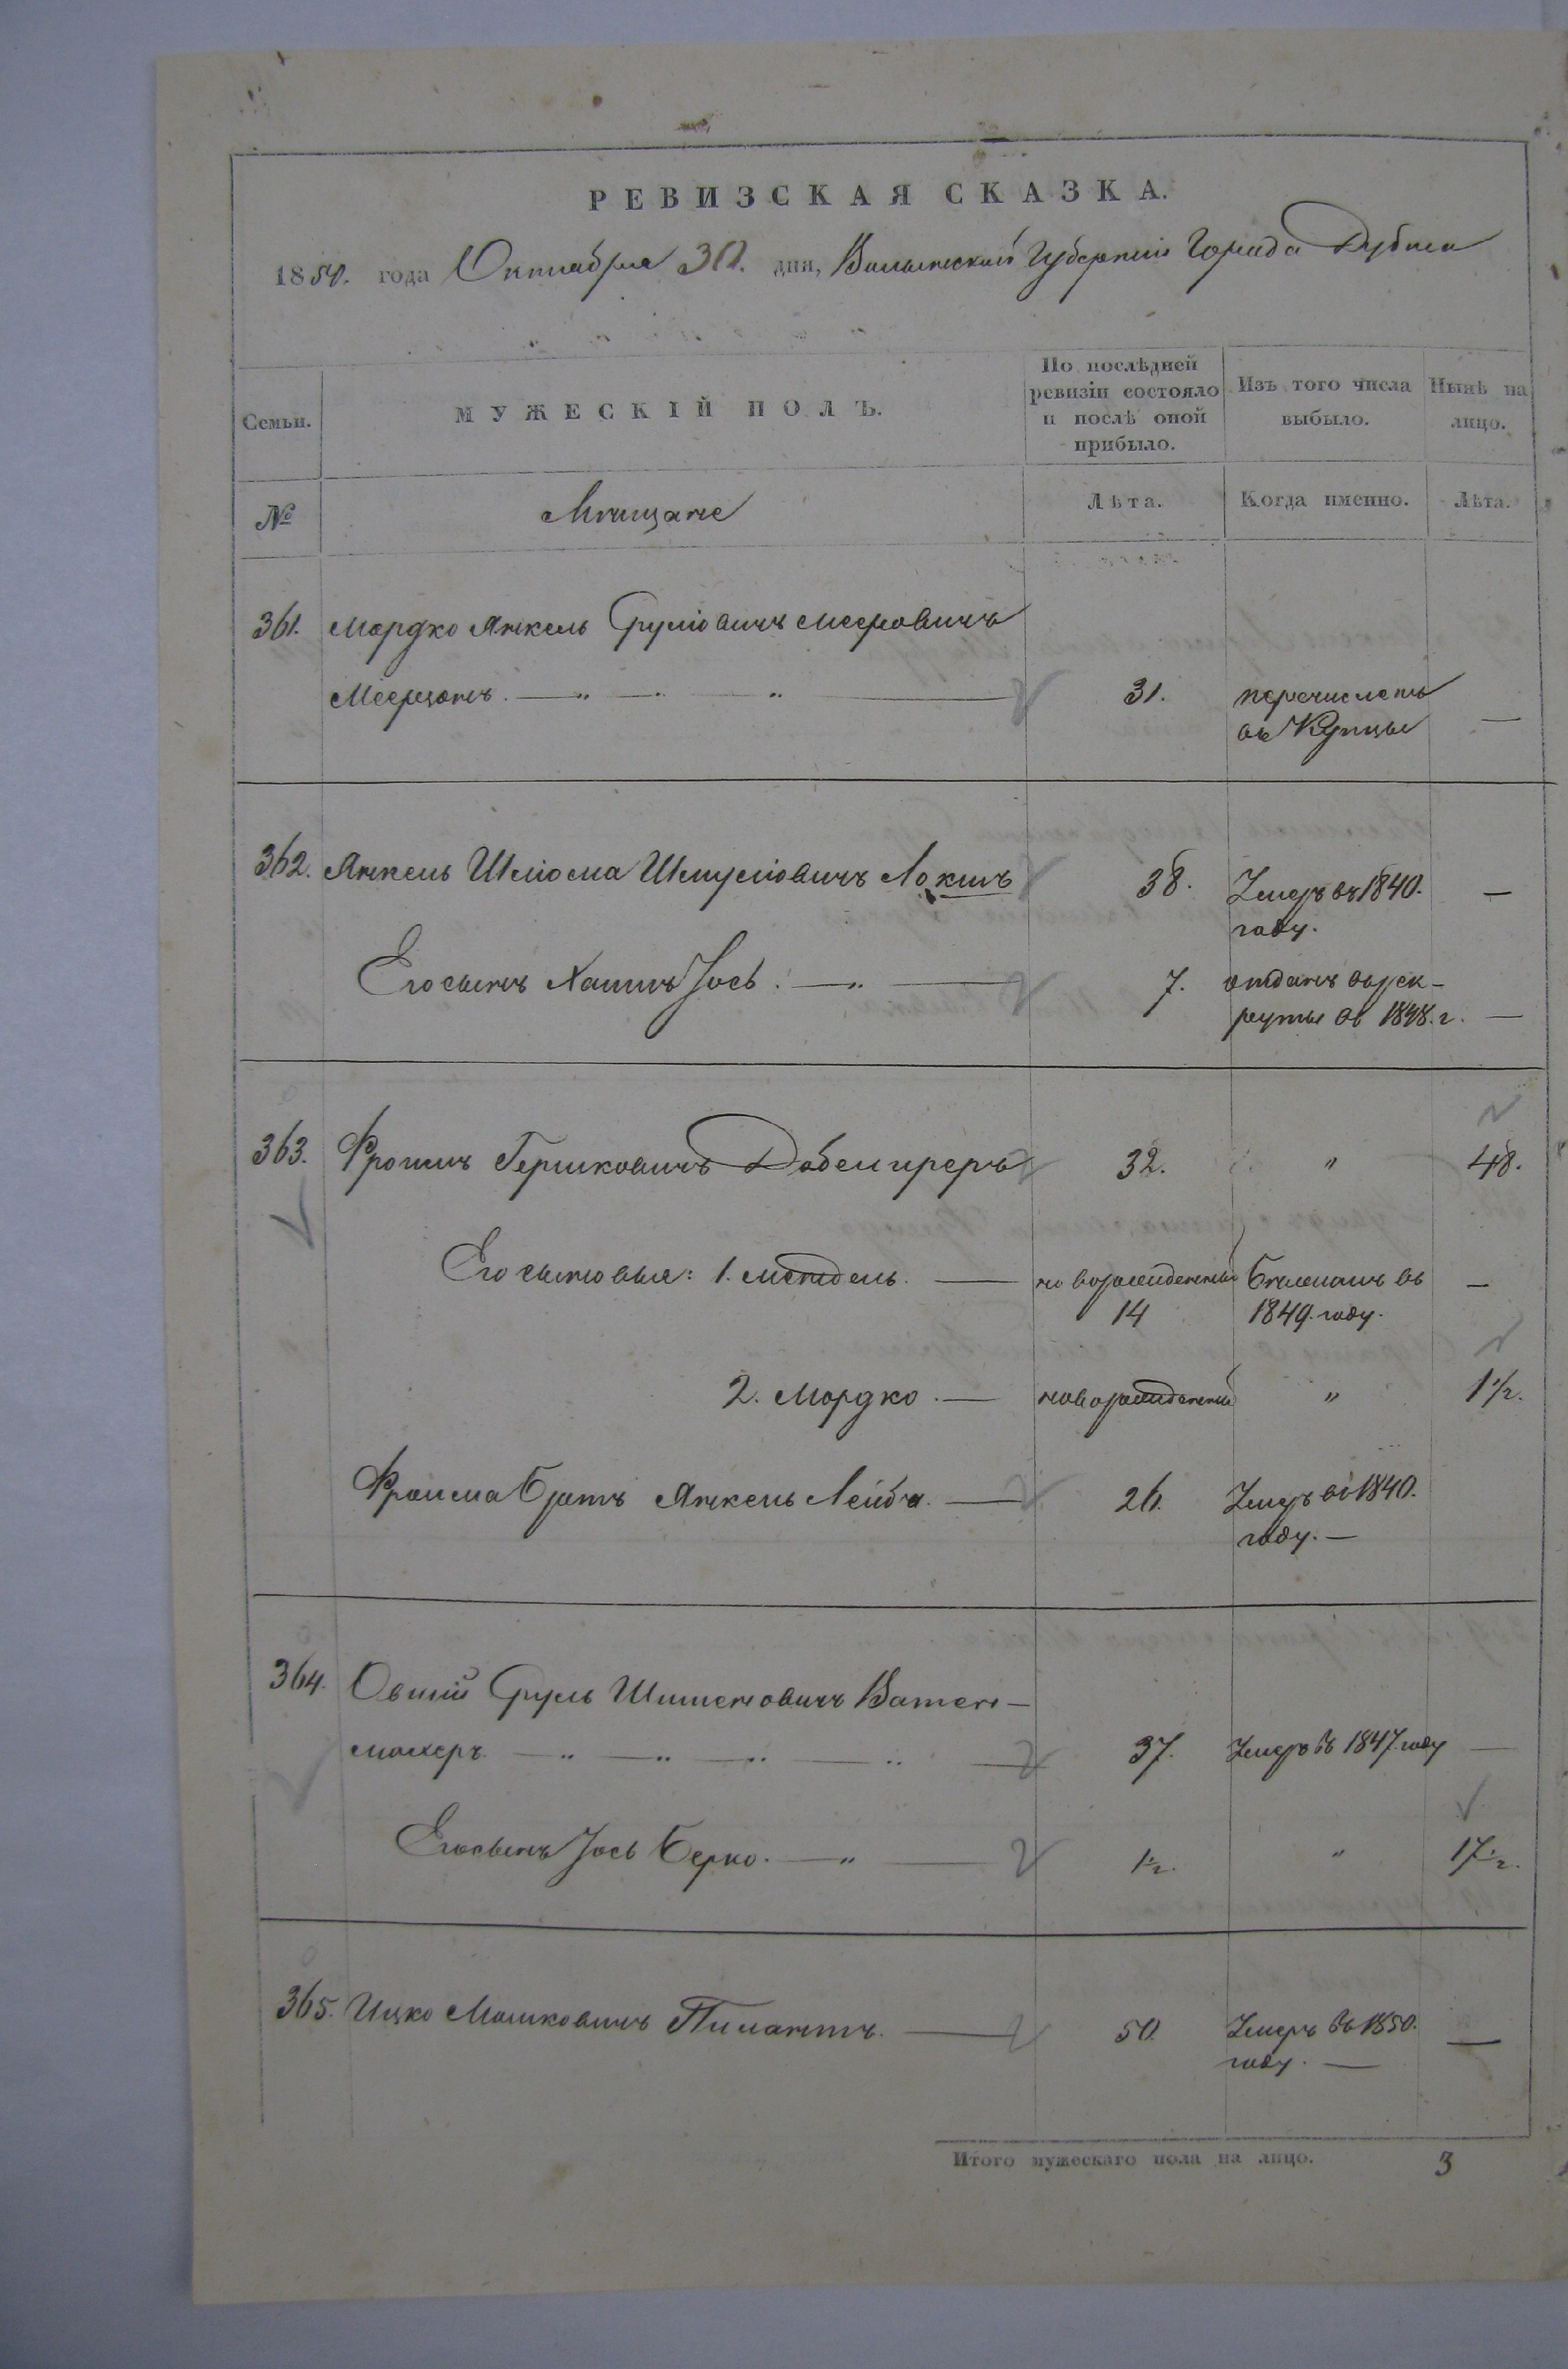 РЕВИЗСКАЯ СКАЗКА.
1850. года Октября 30. дня, Волынской Губернии Города Дубна
Семьи.
МУЖЕСКІЙ ПОЛЪ.
По послѣдней ревизіи состояло и послѣ оной прибыло.
Изъ того числа выбыло.
Нынѣ на лицо.
№
Мѣщане
Лѣта.
Когда именно.
Лѣта.
361. Мордко Янкель Сруліовичъ Мееровичъ
Меерзонъ. 31. перечисленъ —
въ Купцы
362. Янкель Шліома Шмуліовичъ Локшъ 38. Умеръ въ 1840. —
году.
Его сынъ Хаимъ Іось. 7. отданъ върек-
руты въ 1848. г. —
363. Фроимъ Гершковичъ 32. " 48.
Его сыновья: 1. Мендель. — новорожденный Бѣжалъ въ —
14 1849. году.
2. Мордко. — новорожденный " 1 1/2.
Фроима братъ Янкель Лейба. — 26. Умеръ въ 1840.
году. —
364. Овшій Сруль Шименовичъ Ватен-
махеръ. 37. Умеръ въ 1847. году —
Его сынъ Іось Берко. 1 1/2. " 17 1/2.
365. Ицко Мошковичъ 50. Умеръ въ 1850. —
году. —
Итого мужескаго пола на лицо. 3